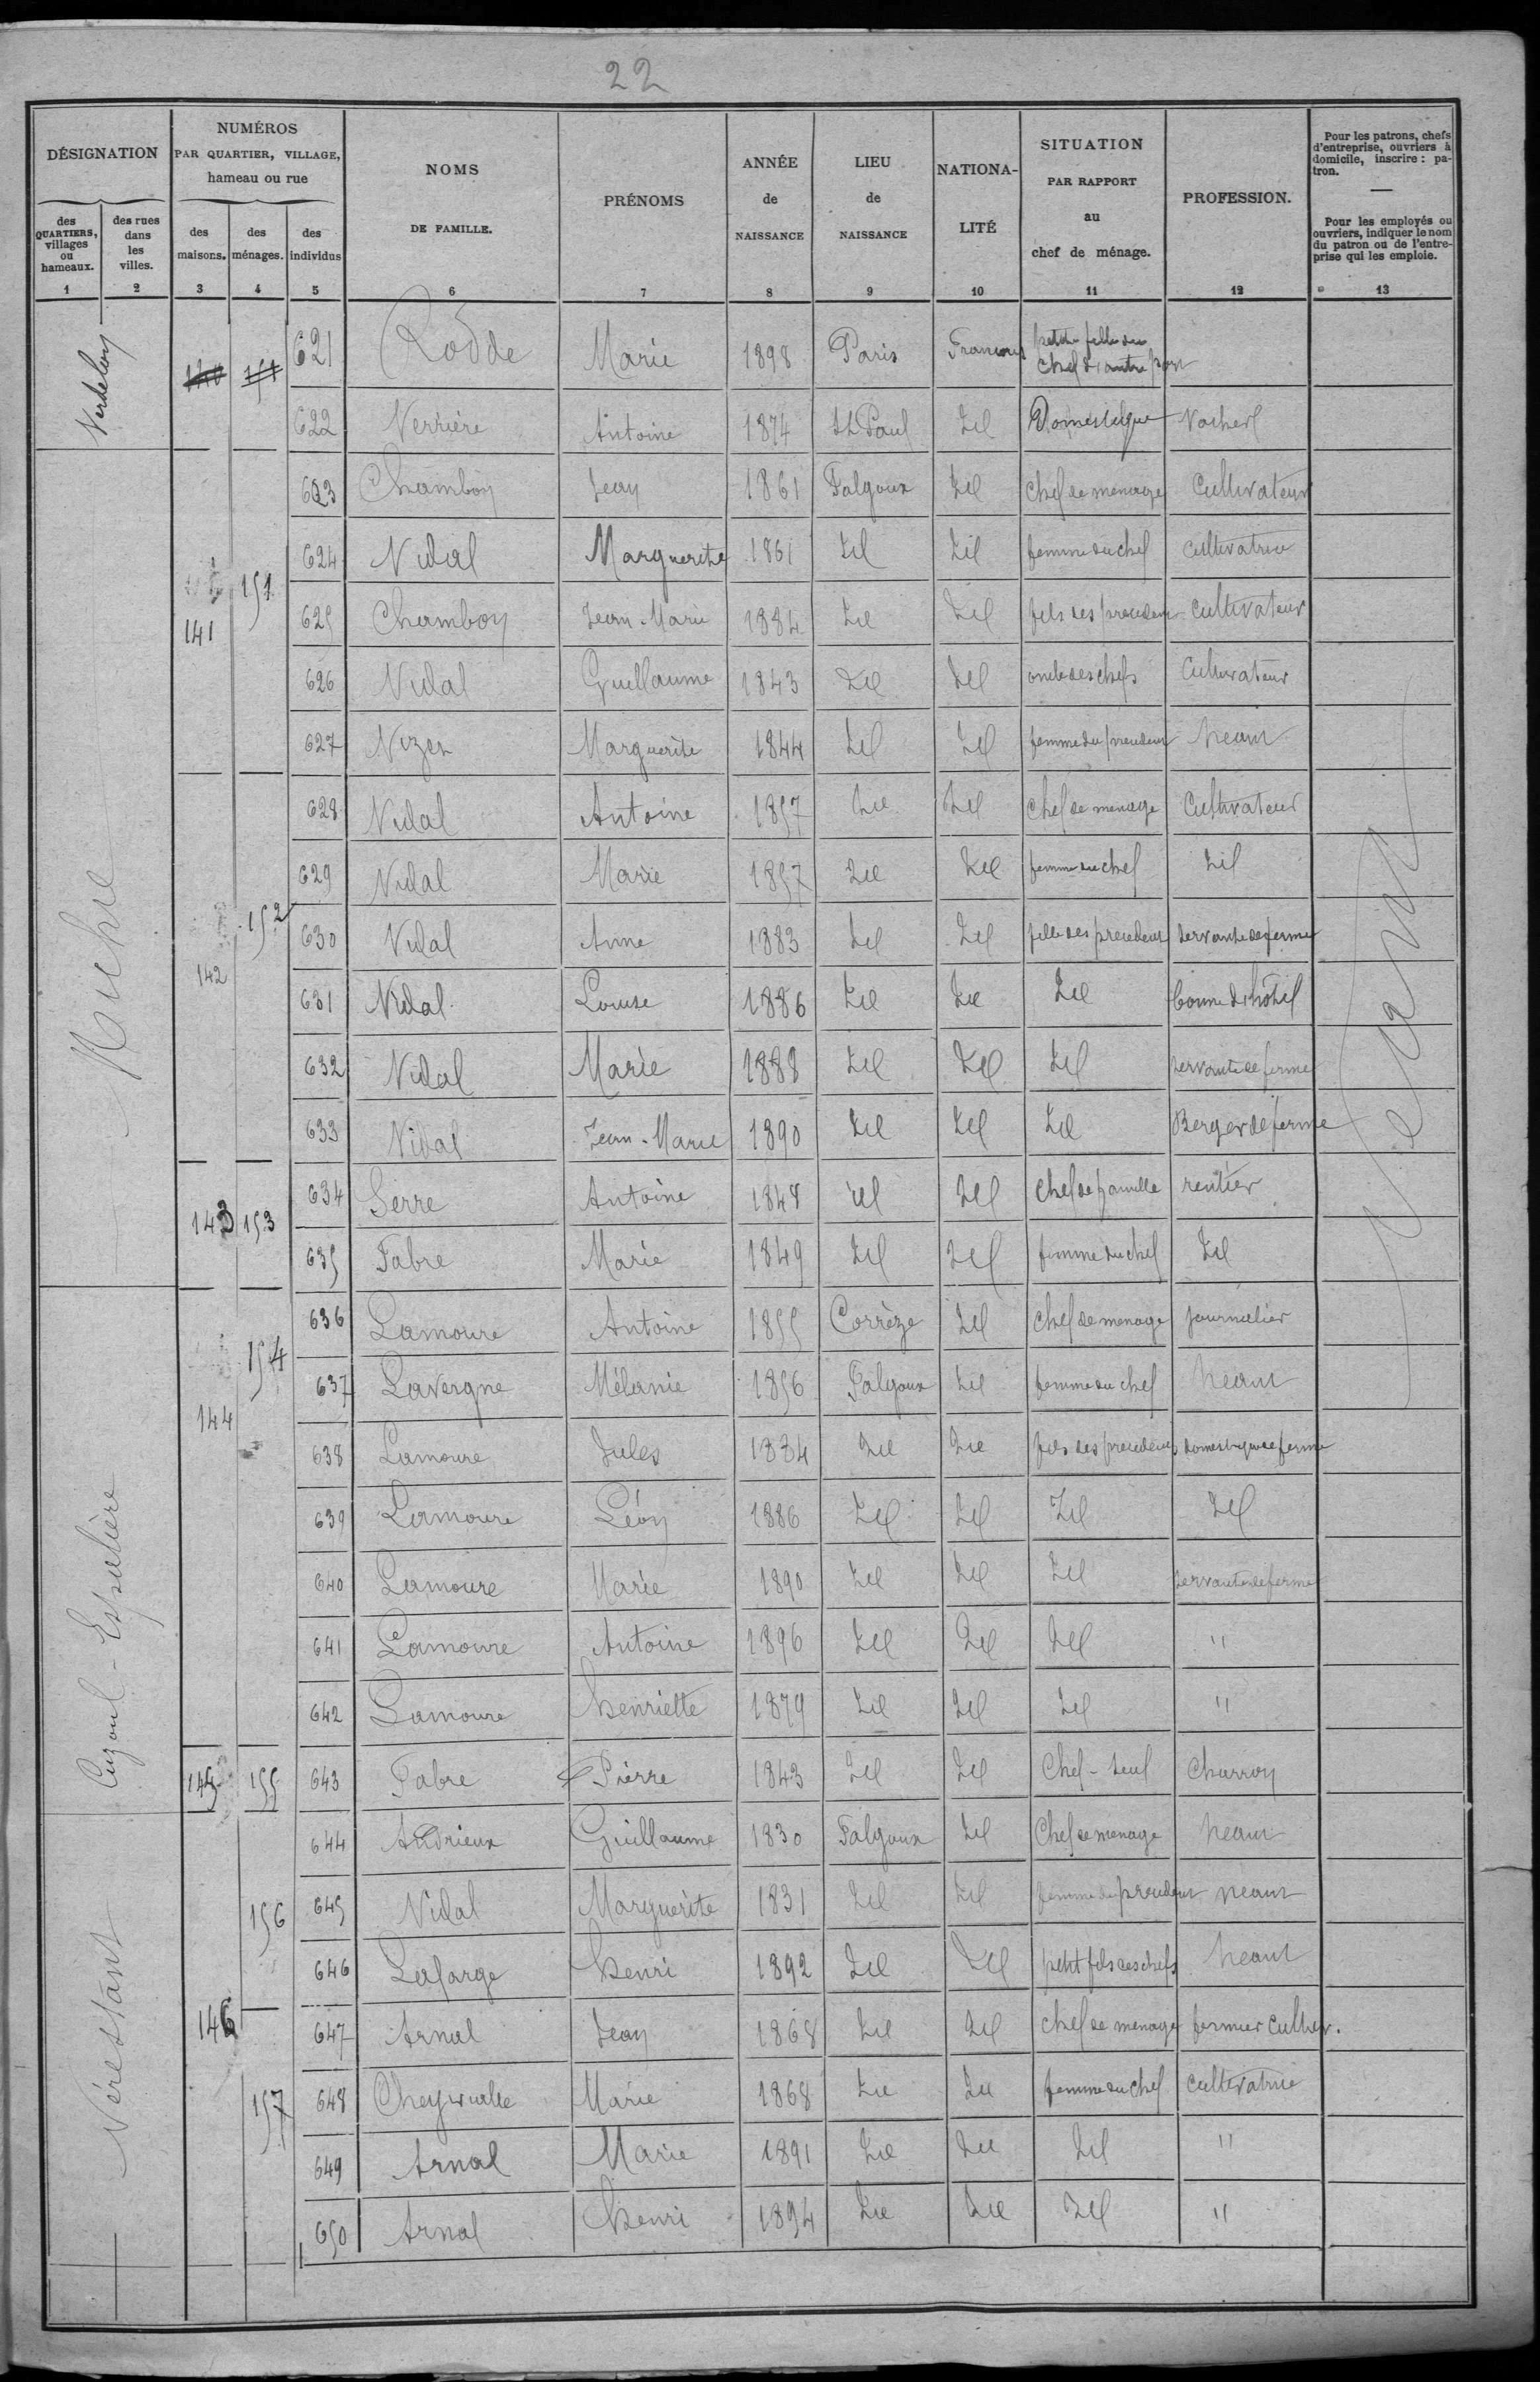 22
DÉSIGNATION
NUMÉROS
PAR QUARTIER, VILLAGE,
hameau ou rue
NOMS
DE FAMILLE.
PRÉNOMS
ANNÉE
de
NAISSANCE
LIEU
de
NAISSANCE
NATIONA-
LITÉ
SITUATION
PAR RAPPORT
au
chef de ménage.
PROFESSION.
Pour les patrons, chefs
d'entreprise, ouvriers à
domicile, inscrire : pa-
tron.
—
Pour les employés ou
ouvriers, indiquer le nom
du patron ou de l'entre-
prise qui les emploie.
des
QUARTIERS,
villages
ou
hameaux.
des rues
dans
les
villes.
des
maisons.
des
ménages.
des
individus
1 2 3 4 5 6 7 8 9 10 11 12 13
621 Rodde Marie 1898 Paris petite fille du
chef d'autre part
622 Verrière Antoine 1874 St Paul Id Domestique Vacher
623 Chambon Jean 1861 Falgoux Id chef de menage Cultivateur
141 151
624 Vidal Marguerite 1861 Id Id femme du chef cultivatrice
625 Chambon Jean-Marie 1884 Id Id fils des precedents cultivateur
626 Vidal Guillaume 1843 Id Id oncle des chefs Cultivateur
627 Marguerite 1844 Id Id femme du precedent neant
Miche
142 152
628 Vidal Antoine 1857 Id Id Chef de menage Cultivateur
629 Vidal Marie 1857 Id Id femme du chef Id
630 Vidal Anne 1883 Id Id fille des precedents servante de ferme
631 Vidal Louise 1886 Id Id Id bonne d'hôtel
632 Vidal Marie 1888 Id Id Id servante de ferme
633 Vidal Jean-Marie 1890 Id Id Id Berger de ferme
143 153
634 Serre Antoine 1848 id Id chef de famille rentier
635 Fabre Marie 1849 Id Id femme du chef Id
144 154
636 Lamoure Antoine 1855 Corrèze Id chef de menage journalier
637 Lavergne Mélanie 1856 Falgoux Id femme du chef neant
638 Lamoure Jules 1884 Id Id fils des precedents domestique de ferme
639 Lamoure Léon 1886 Id Id Id Id
640 Lamoure Marie 1890 Id Id Id servante de ferme
641 Lamoure Antoine 1896 Id Id Id "
642 Lamoure Henriette 1879 Id Id Id "
145 155 643 Fabre Pierre 1843 Id Id Chef-seul Charron
146 156
644 Andrieux Guillaume 1830 Falgoux Id Chef de menage neant
645 Vidal Marguerite 1831 Id Id femme du precedent neant
646 Lafarge Henri 1892 Id Id petit fils des chefs neant
157
647 Arnal Jean 1868 Id Id chef de menage fermier cultiv.
648 Marie 1868 Id Id femme du chef cultivatrice
649 Arnal Marie 1891 Id Id Id "
650 Arnal Henri 1894 Id Id Id "